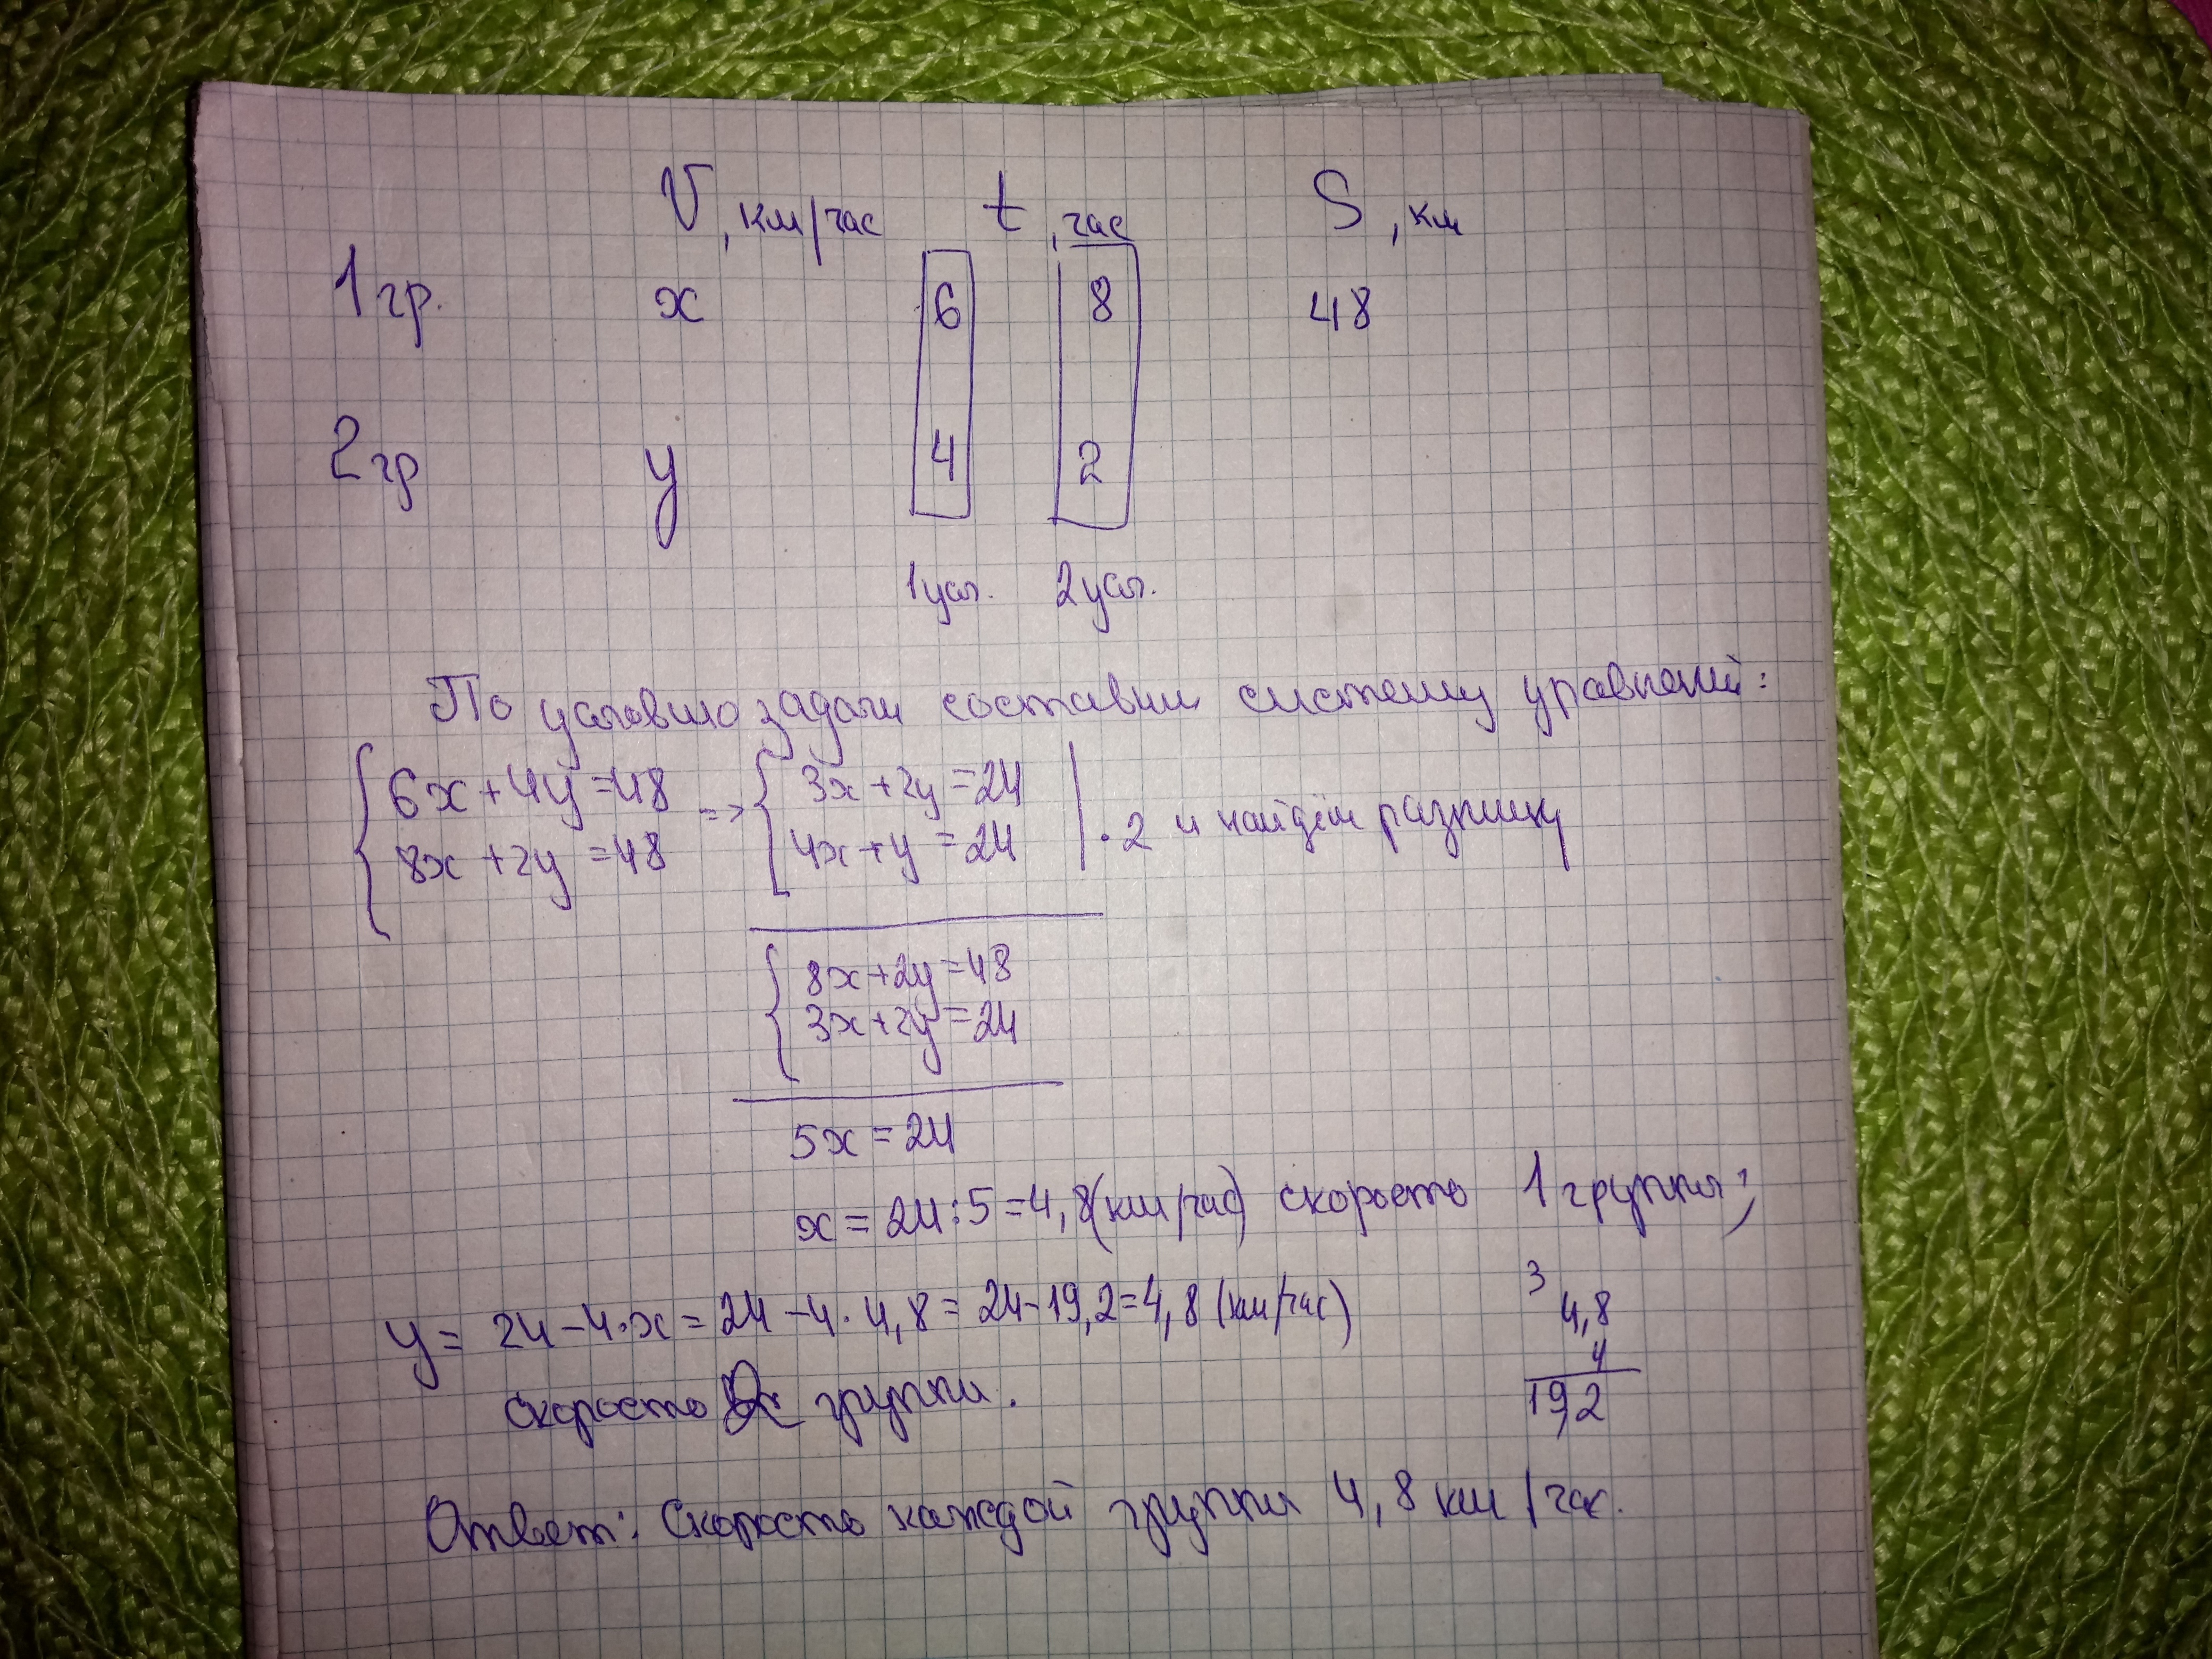 V, км/час t, час S, км
1 гр. x 6 8 48
2 гр y 4 2
1 усл. 2 усл.
По условию задачи составим систему уравнений:
6x+4y=48 => 3x+2y=24
8x+2y=48 4x+y=24 | ·2 и найдём разницу
8x+2y=48
3x+2y=24
5x=24
x=24:5=4,8(км/час) скорость 1 группы;
y= 24-4·x=24-4·4,8=24-19,2=4,8(км/час)
скорость 2 группы.
3
4,8
4
19,2
Ответ: Скорость каждой группы 4,8 км/час.